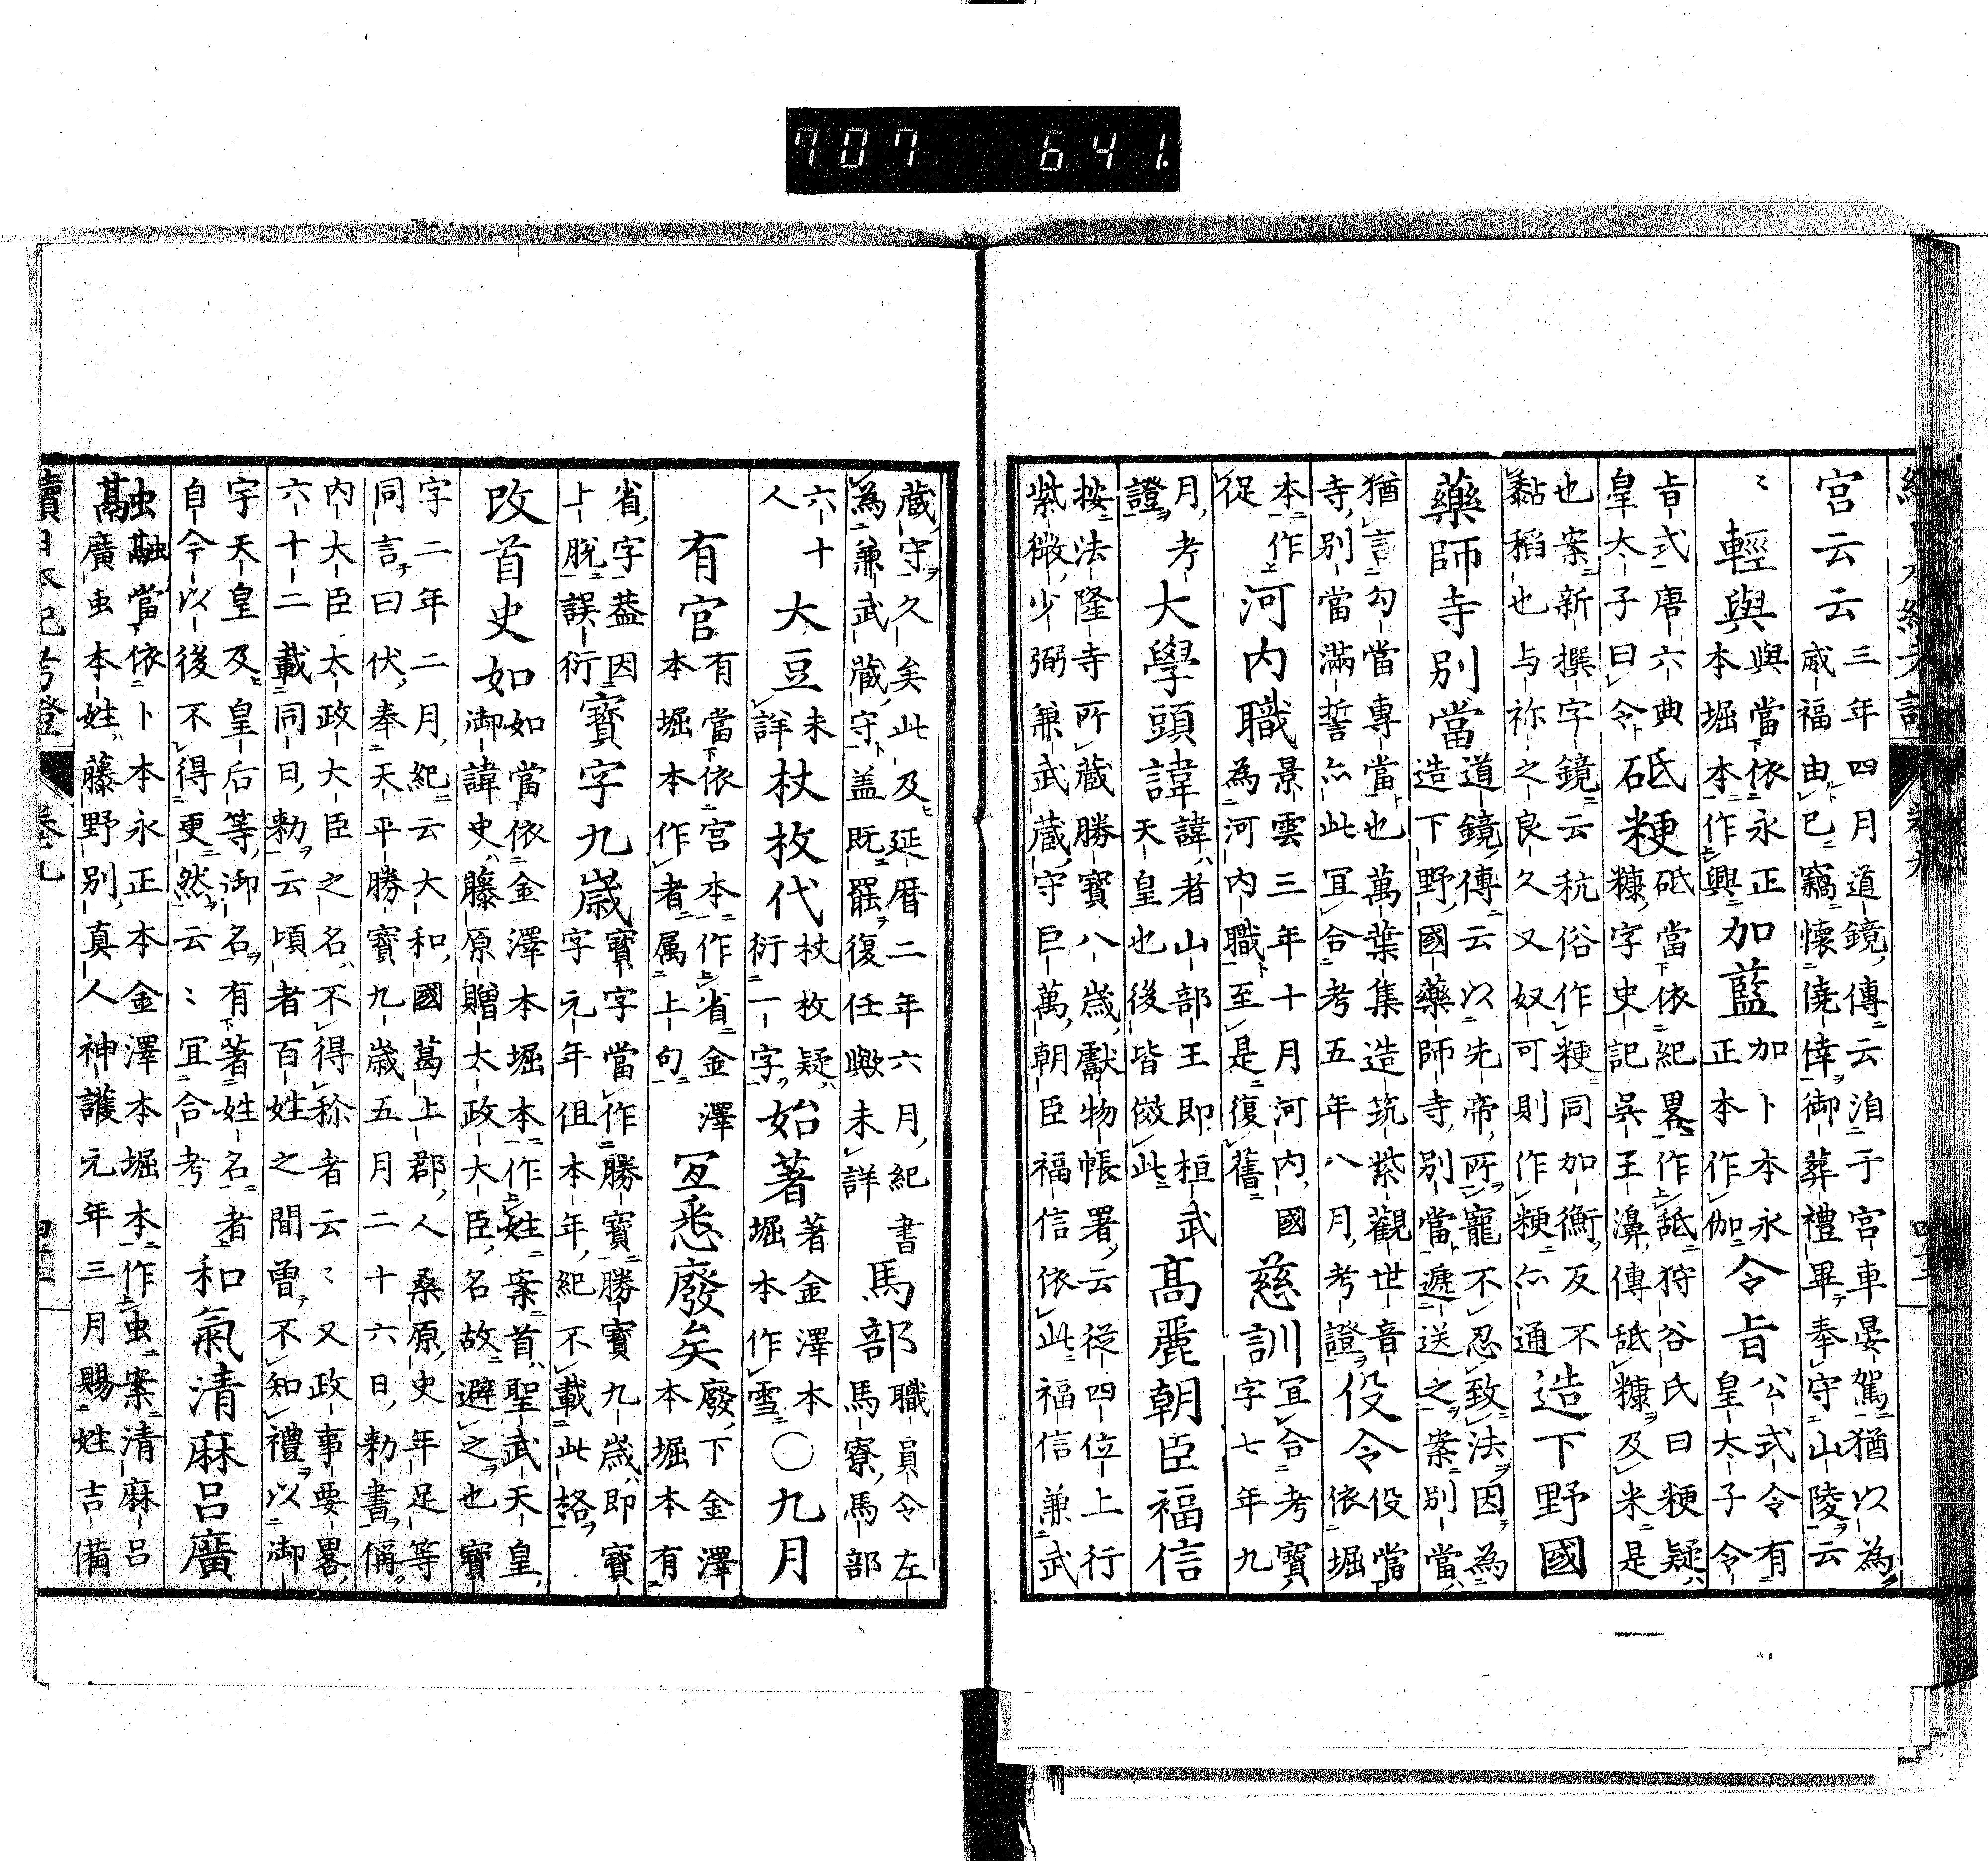 宮云云
三年四月道鏡傳云洎于宮車晏駕猶以為
威福由己竊懷僥倖御葬禮畢奉守山陵云
〻 輕與
與當依永正
本堀本作興
加藍
加卜本永
正本作伽
令旨
公式令有
皇太子令
旨式唐六典
皇太子曰令
砥粳
砥當依紀畧作舐狩谷氏曰粳疑
糠字史記呉王濞傳舐糠及米是
也案新撰字鏡云秔俗作粳同加衡反不
黏稻也与祢之良久又奴可則作粳亦通
造下野國
藥師寺別當
道鏡傳云以先帝所寵不忍致法因為
造下野國藥師寺別當遞送之案別當
猶言勾當專當也萬葉集造筑紫觀世音
寺別當滿誓亦此宜合考五年八月考證
役令
役當
依堀
本作
從
河内職
景雲三年十月河内國
為河内職至是復舊
慈訓
宜合考寳
字七年九
月考
證
大學頭諱
諱者山部王即桓武
天皇也後皆倣此
髙麗朝臣福信
按法隆寺所蔵勝寳八歳獻物帳署云從四位上行
紫微少弼兼武蔵守巨萬朝臣福信依此福信兼武
蔵守久矣此及延暦二年六月紀書
為兼武蔵守盖既罷復任歟未詳
馬部
職員令左
馬寮馬部
六十
人
大豆
未
詳
杖枚代
杖枚疑
衍一字
始著
著金澤本
堀本作雪
〇九月
有官
有當依宮本作省金澤
本堀本作者属上句
冝悉廢矣
廢下金澤
本堀本有
省字葢因
上脱誤衍
寳字九歳
寳字當作勝寳勝寳九歳即寳
字元年但本年紀不載此格
改首史如
如當依金澤本堀本作姓案首聖武天皇
御諱史藤原贈太政大臣名故避之也寳
字二年二月紀云大和國葛上郡人桑原史年足等
同言曰伏奉天平勝寳九歳五月二十六日勅書偁
内大臣太政大臣之名不得称者云〻又政事要畧
六十二載同日勅云頃者百姓之間曽不知禮以御
字天皇及皇后等御名有著姓名者
自今以後不得更然云〻宜合考
和氣清麻呂廣
融
融當依卜本永正本金澤本堀本作虫案清麻呂
廣虫本姓藤野別真人神護元年三月賜姓吉備
續日本紀考證
卷九